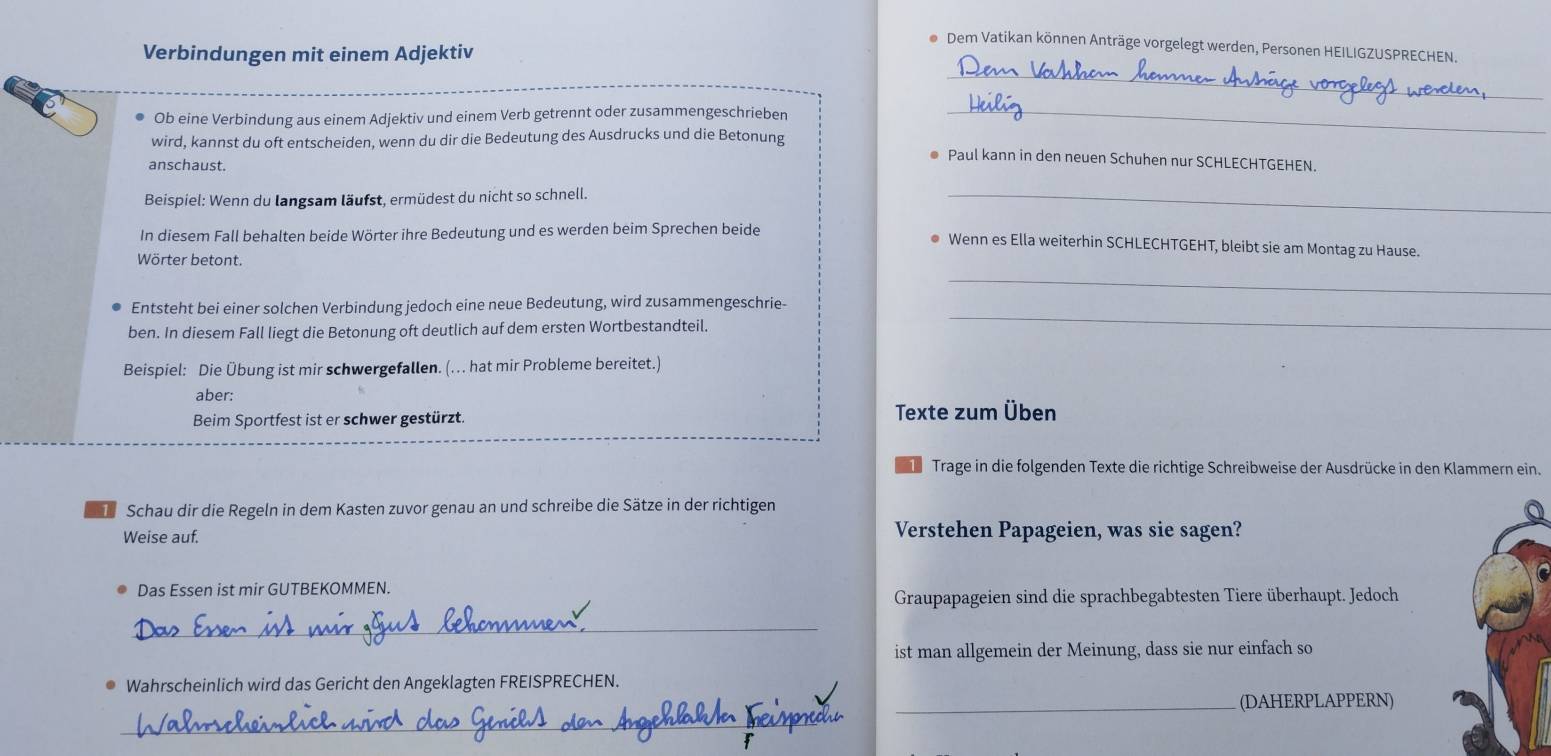 Verbindungen mit einem Adjektiv
Ob eine Verbindung aus einem Adjektiv und einem Verb getrennt oder zusammengeschrieben
wird, kannst du oft entscheiden, wenn du dir die Bedeutung des Ausdrucks und die Betonung
anschaust.
Beispiel: Wenn du langsam läufst, ermüdest du nicht so schnell.
In diesem Fall behalten beide Wörter ihre Bedeutung und es werden beim Sprechen beide
Wörter betont.
Entsteht bei einer solchen Verbindung jedoch eine neue Bedeutung, wird zusammengeschrie-
ben. In diesem Fall liegt die Betonung oft deutlich auf dem ersten Wortbestandteil.
Beispiel: Die Übung ist mir schwergefallen. (... hat mir Probleme bereitet.)
aber:
Beim Sportfest ist er schwer gestürzt.
1 Schau dir die Regeln in dem Kasten zuvor genau an und schreibe die Sätze in der richtigen
Weise auf.
Das Essen ist mir GUTBEKOMMEN.
Das Essen ist mir gut bekommen.
Wahrscheinlich wird das Gericht den Angeklagten FREISPRECHEN.
Wahrscheinlich wird das Gericht den Angeklakten freisprechen
Dem Vatikan können Anträge vorgelegt werden, Personen HEILIGZUSPRECHEN.
Dem Vatikan kommen Anträge vorgelegt werden,
Heilig
Paul kann in den neuen Schuhen nur SCHLECHTGEHEN.
Wenn es Ella weiterhin SCHLECHTGEHT, bleibt sie am Montag zu Hause.
Texte zum Üben
1 Trage in die folgenden Texte die richtige Schreibweise der Ausdrücke in den Klammern ein.
Verstehen Papageien, was sie sagen?
Graupapageien sind die sprachbegabtesten Tiere überhaupt. Jedoch
ist man allgemein der Meinung, dass sie nur einfach so
(DAHERPLAPPERN)